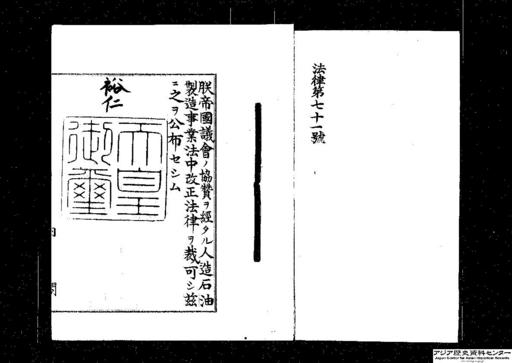 法律第七十一號
朕帝國議會ノ協贊ヲ經タル人造石油
製造事業法中改正法律ヲ裁可シ玆
ニ之ヲ公布セシム
裕仁
天皇御璽
内閣
アジア歴史資料センター
Japan Center for Asian Historical Records